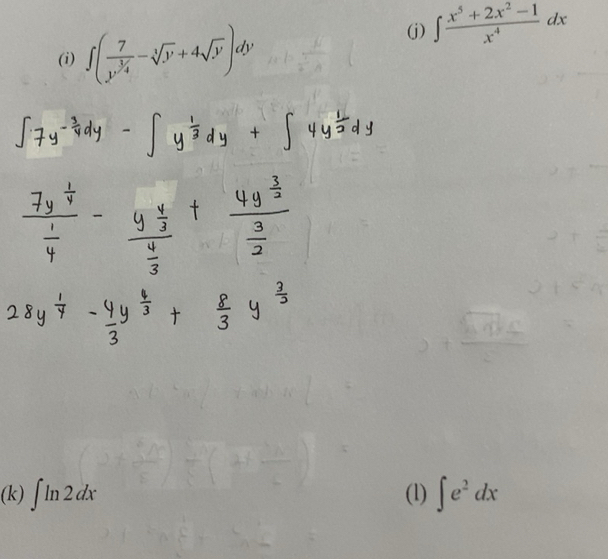 (i) ∫(7/y^(3/4) − ∛y + 4√y) dy
(j) ∫ (x⁵ + 2x² − 1)/x⁴ dx
∫ 7y^(-3/4) dy − ∫ y^(1/3) dy + ∫ 4y^(1/2) dy
7y^(1/4)/(1/4) − y^(4/3)/(4/3) + 4y^(3/2)/(3/2)
28y^(1/4) − 4/3 y^(4/3) + 8/3 y^(3/2)
(k) ∫ ln 2 dx
(l) ∫ e² dx